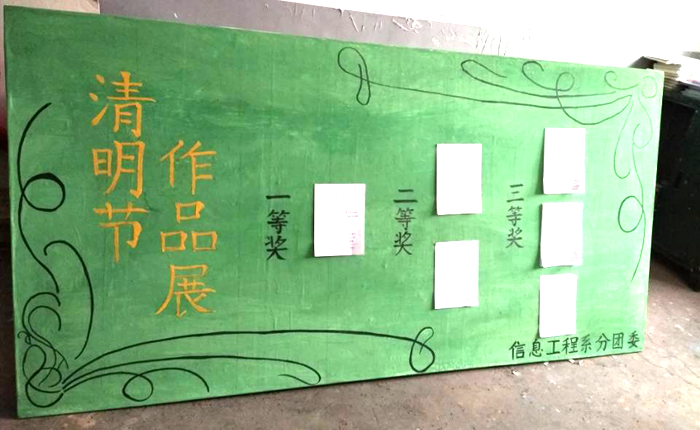 清明节
作品展
一等奖
二等奖
三等奖
信息工程系分团委